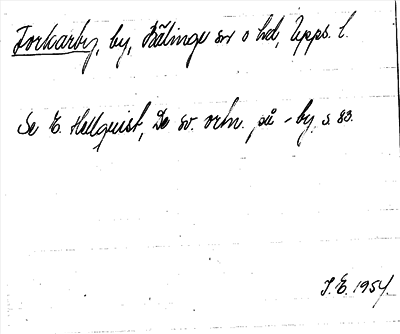 Forkarby, by, Bälinge sn o hd, Upps. l.
Se E. Hellquist, De sv. ortn. på -by, s. 83.
J. E. 1954.